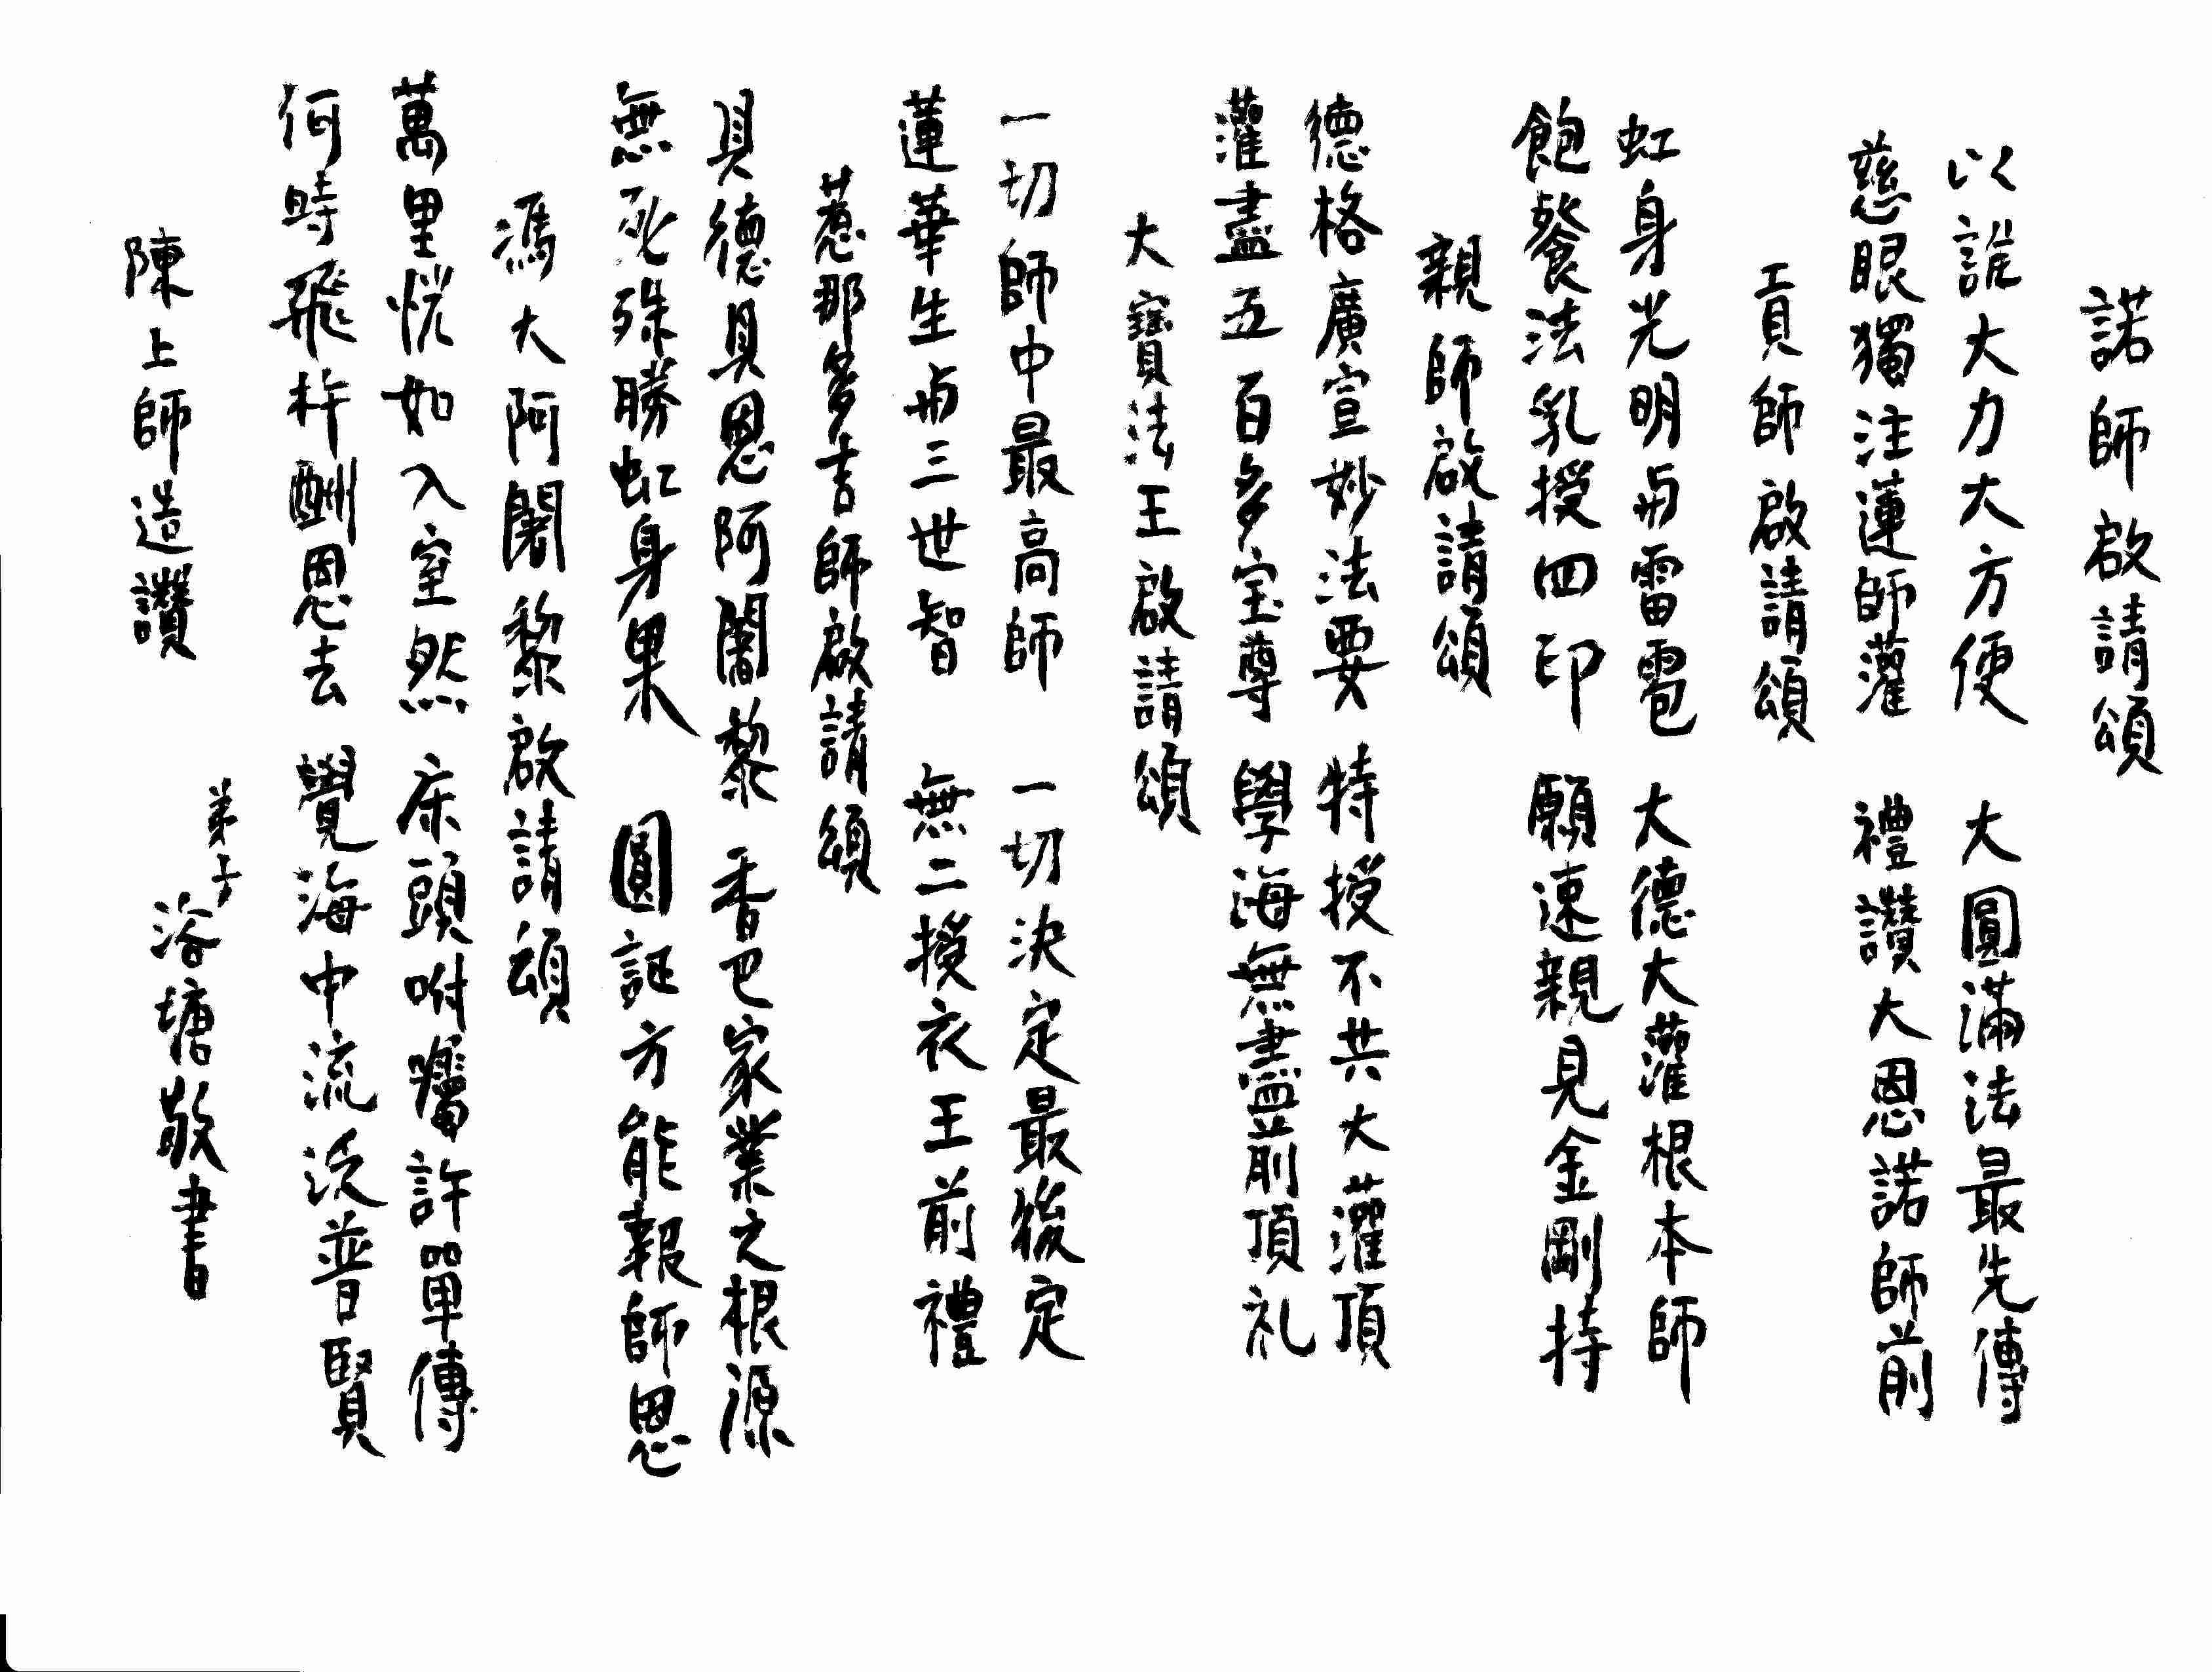 諾師啟請頌
以誰大力大方便 大圓滿法最先傳
慈眼獨注蓮師灌 禮讚大恩諾師前
貢師啟請頌
虹身光明与雷雹 大德大灌根本師
飽餐法乳授四印 願速親見金剛持
親師啟請頌
德格廣宣妙法要 特授不共大灌頂
灌盡五百多宝尊 學海無盡前頂礼
大寶法王啟請頌
一切師中最高師 一切決定最後定
蓮華生与三世智 無二授衣王前禮
惹那多吉師啟請頌
具德具恩阿闍黎 香巴家業之根源
無死殊勝虹身果 圓証方能報師恩
馮大阿闍黎啟請頌
萬里恍如入室然 床頭咐囑許單傳
何時飛杵酬恩去 覺海中流泛普賢
陳上師造讚
弟子 浴塘敬書